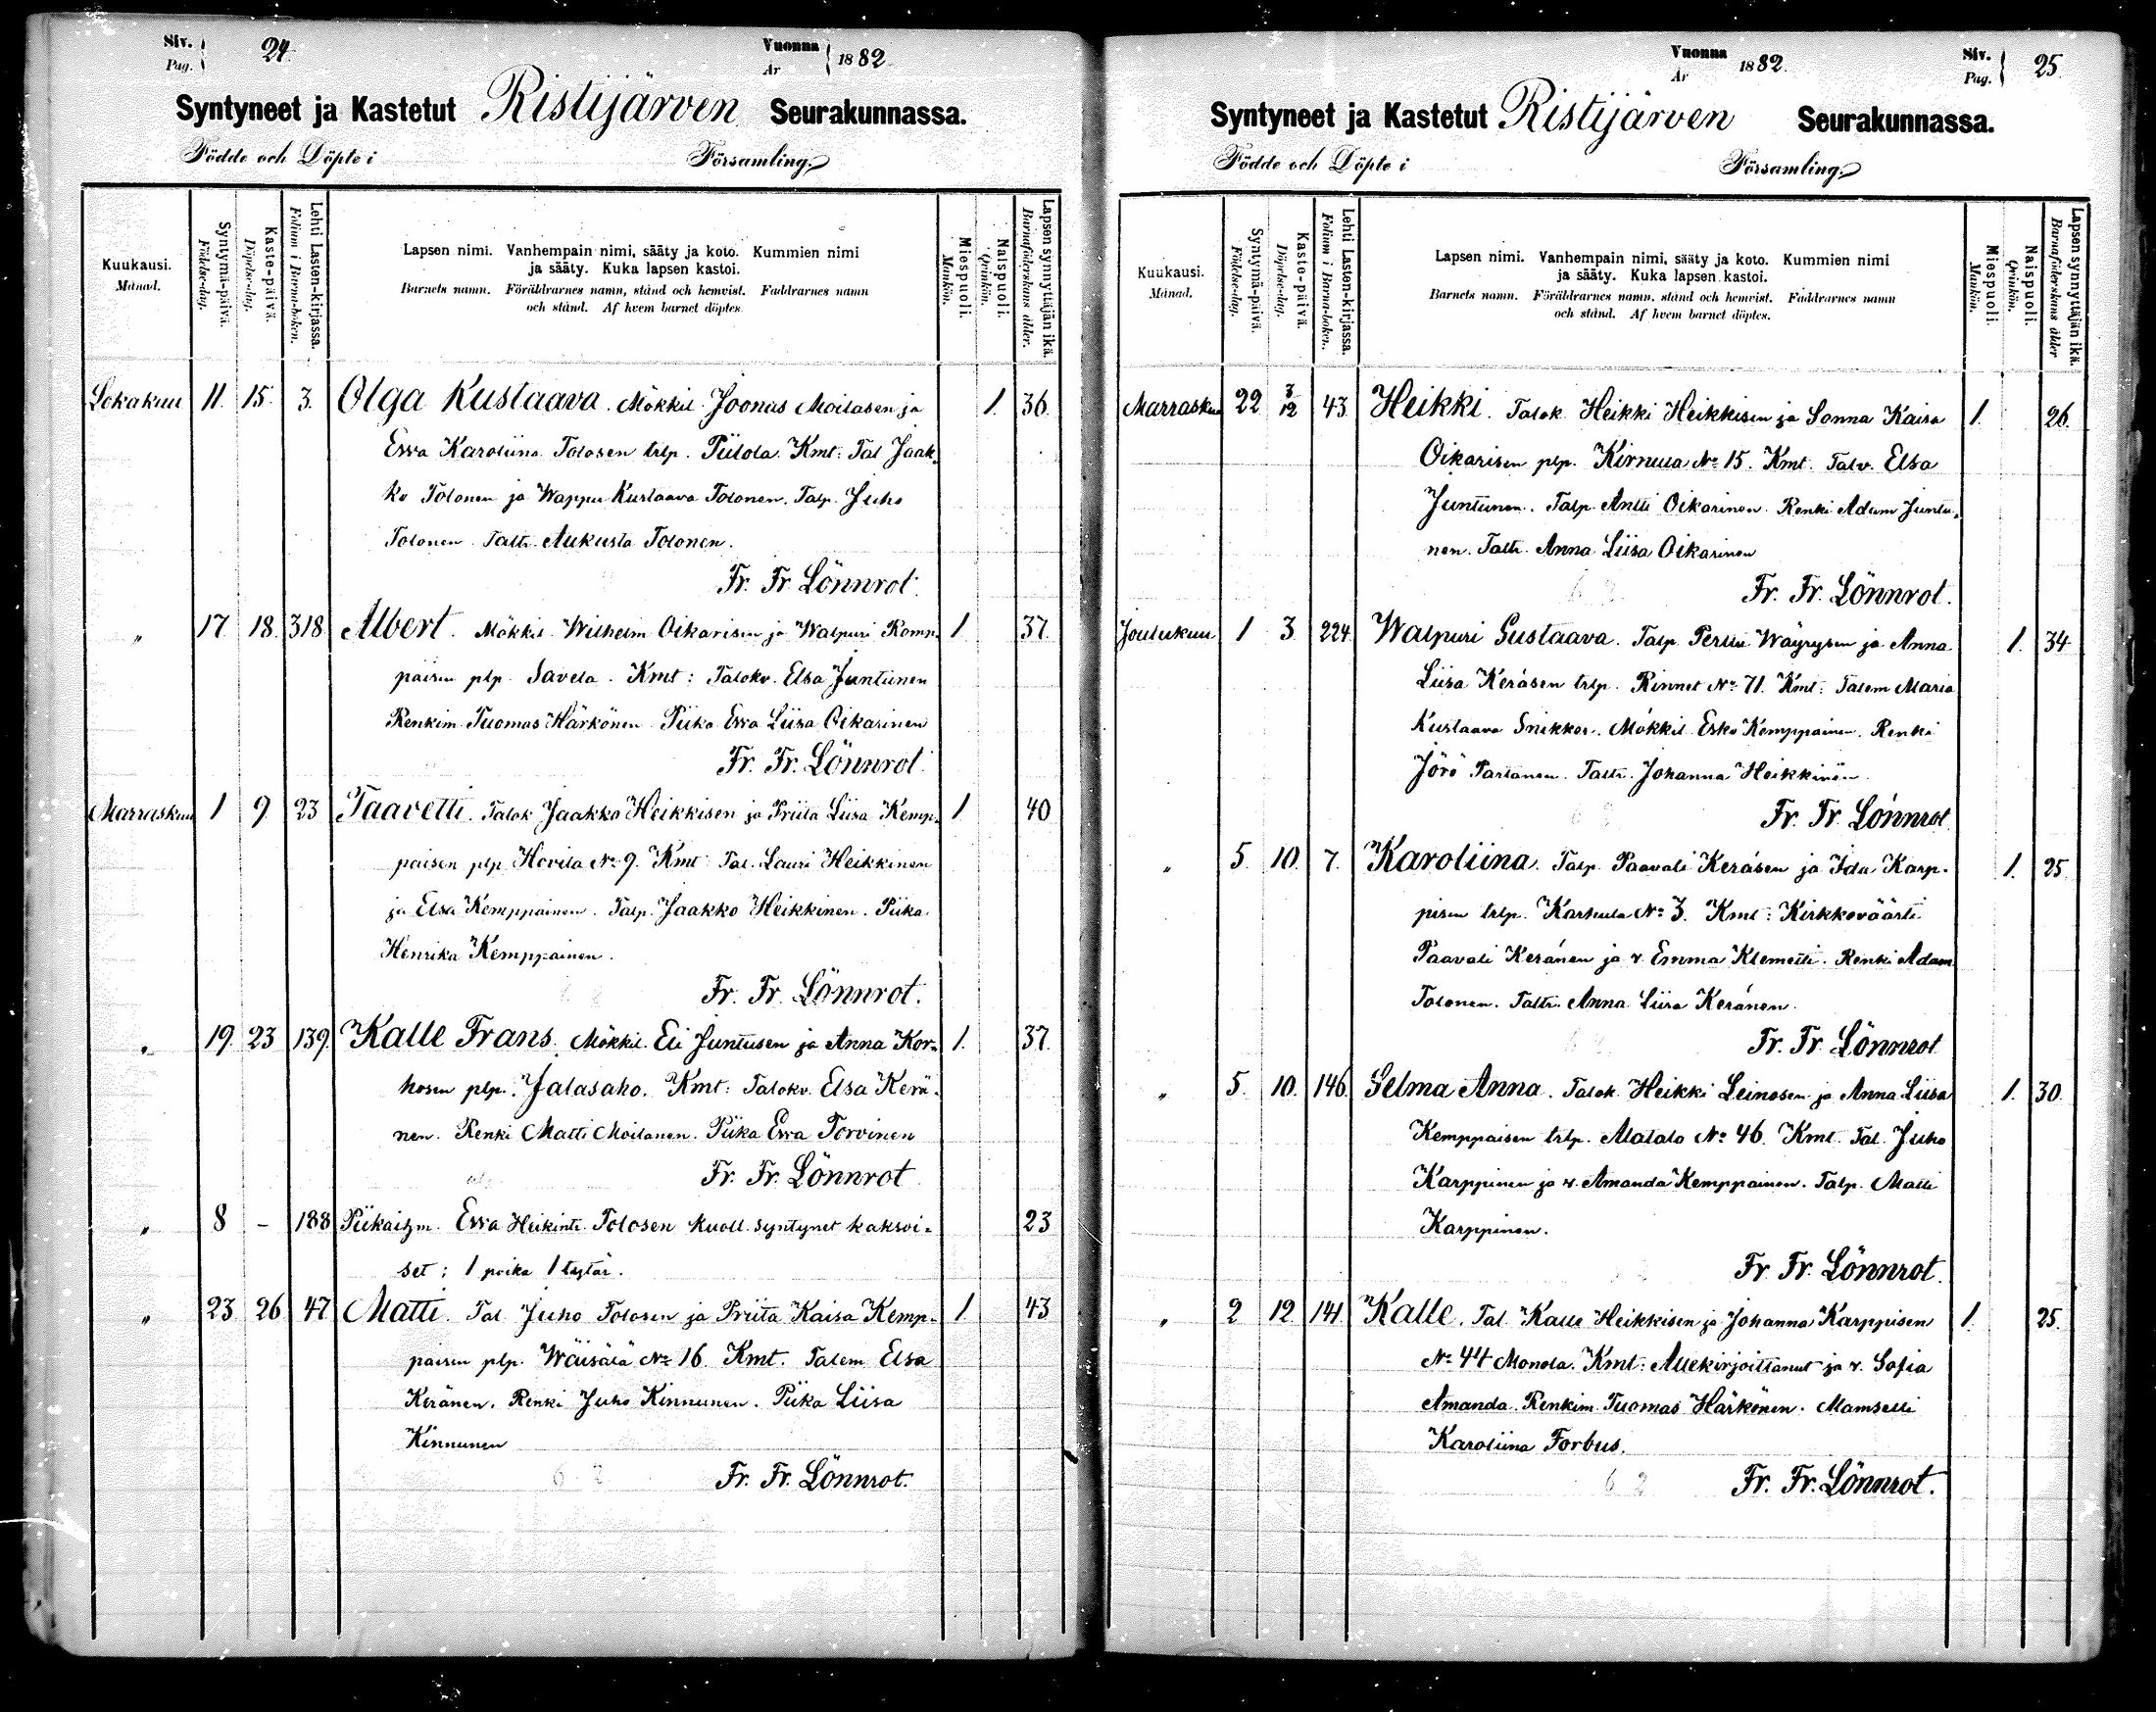 Siv. Pag. 24. Vuonna År 1882
Syntyneet ja Kastetut Ristijärven Seurakunnassa.
Födde och Döpte i Församling.
Kuukausi. Månad.
Syntymä-päivä. Födelse-dag.
Kaste-päivä. Döpelse-dag.
Lehti Lasten-kirjassa. Folium i Barna-boken.
Lapsen nimi. Vanhempain nimi, sääty ja koto. Kummien nimi
ja sääty. Kuka lapsen kastoi.
Barnets namn. Föräldrarnes namn, stånd och hemvist. Faddrarnes namn
och stånd. Af hvem barnet döptes.
Miespuoli. Mankön.
Naispuoli. Qvinkön.
Lapsen synnyttäjän ikä. Barnaföderskans ålder.
Lokakuu 11. 15. 3. Olga Kustaava. Mökkil. Joonas Moilasen ja 1. 36.
Eeva Karoliina Tolosen trlp. Piilola. Kmt: Tal Jaak-
ko Tolonen ja Wappu Kustaava Tolonen. Talp. Juho
Tolonen Taltr. Aukusta Tolonen.
Fr. Fr. Lönnrot.
" 17. 18. 318 Albert. Mökkil. Wilhelm Oikarisen ja Walpuri Komu- 1 37.
paisen plp. Savela. Kmt: Talokv. Elsa Juntunen
Renkim. Tuomas Härkönen Piika Eeva Liisa Oikarinen
Fr. Fr. Lönnrot.
Marraskuu 1 9. 23 Taavetti. Talok. Jaakko Heikkisen ja Priita Liisa Kemp- 1 40
paisen plp. Hovila No 9. Kmt: Tal. Lauri Heikkinen
ja Elsa Kemppainen. Talp. Jaakko Heikkinen. Piika
Henrika Kemppainen.
Fr. Fr. Lönnrot.
" 19. 23 139. Kalle Frans. Mökkil. Eli Juntusen ja Anna Kor- 1. 37.
hosen plp. Jalasaho. Kmt: Talokv. Elsa Kerä-
nen. Renki Matti Moilanen. Piika Eeva Torvinen
Fr. Fr. Lönnrot
" 8 - 188 Piikaitzm. Eeva Heikint. Tolosen kuoll. syntynet kaksoi- 23
set: 1 poika 1 tytär.
" 23 26 47 Matti. Tal. Juho Tolosen ja Priita Kaisa Kemp- 1 43
paisen plp. Wäisälä No 16. Kmt. Talem Elsa
Keränen. Renki Juho Kinnunen. Piika Liisa
Kinnunen
Fr. Fr. Lönnrot.
Vuonna År 1882. Siv. Pag. 25.
Syntyneet ja Kastetut Ristijärven Seurakunnassa.
Födde och Döpte i Församling.
Kuukausi. Månad.
Syntymä-päivä. Födelse-dag.
Kaste-päivä. Döpelse-dag.
Lehti Lasten-kirjassa. Folium i Barna-boken.
Lapsen nimi. Vanhempain nimi, sääty ja koto. Kummien nimi
ja sääty. Kuka lapsen kastoi.
Barnets namn. Föräldrarnes namn, stånd och hemvist. Faddrarnes namn
och stånd. Af hvem barnet döptes.
Miespuoli. Mankön.
Naispuoli. Qvinkön.
Lapsen synnyttäjän ikä. Barnaföderskans ålder
Marraskuu 22 3/12 43 Heikki. Talok. Heikki Heikkisen ja Sanna Kaisa 1. 26.
Oikarisen plp. Kirnula No 15. Kmt. Talv. Elsa
Juntunen. Talp. Antti Oikarinen. Renki Adam Juntu-
nen. Taltr. Anna Liisa Oikarinen
Fr. Fr. Lönnrot.
Joulukuu 1 3 224. Walpuri Gustaava. Talp. Perttu Wäyrysen ja Anna 1. 34
Liisa Keräsen trlp. Rinnet No 71. Kmt: Talem Maria
Kustaava Snikker. Mökkil. Esko Kemppainen. Renki
Jörö Partanen. Taltr. Johanna Heikkinen.
Fr. Fr. Lönnrot
" 5. 10. 7. Karoliina. Talp. Paavali Keräsen ja Ida Karp- 1. 25.
pisen trlp. Karhula No 3. Kmt: Kirkkoväärti
Paavali Keränen ja v. Emma Klemetti. Renki Adam
Tolonen. Taltr. Anna Liisa Keränen.
Fr. Fr. Lönnrot
" 5. 10. 146. Selma Anna. Talok. Heikki Leinosen ja Anna Liisa 1. 30.
Kemppaisen trlp. Alatalo No 46. Kmt. Tal. Juho
Karppinen ja v. Amanda Kemppainen. Talp. Matti
Karppinen.
Fr. Fr. Lönnrot.
" 2 12. 141 Kalle. Tal. Kalle Heikkisen ja Johanna Karppisen 1. 25.
No 44 Monola. Kmt: Allekirjoittanut ja v. Sofia
Amanda. Renkim. Tuomas Härkönen. Mamselli
Karoliina Forbus.
Fr. Fr. Lönnrot.